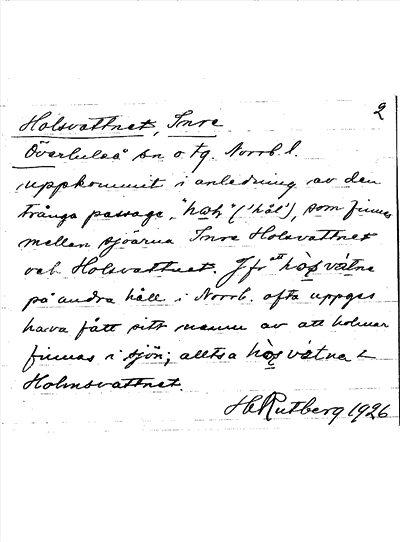 2
Holsvattnet, Inre
Överluleå sn o. tg. Norrb. l.
uppkommit i anledning av den
trånga passage, "hɷḷ" ('hål'), som finnes
mellan sjöarna Inre Holsvattnet
och Holsvattnet. Jfr att
på andra håll i Norrb. ofta uppges
hava fått sitt namn av att holmar
finnas i sjön; alltså
Holmsvattnet.
H Rutberg 1926